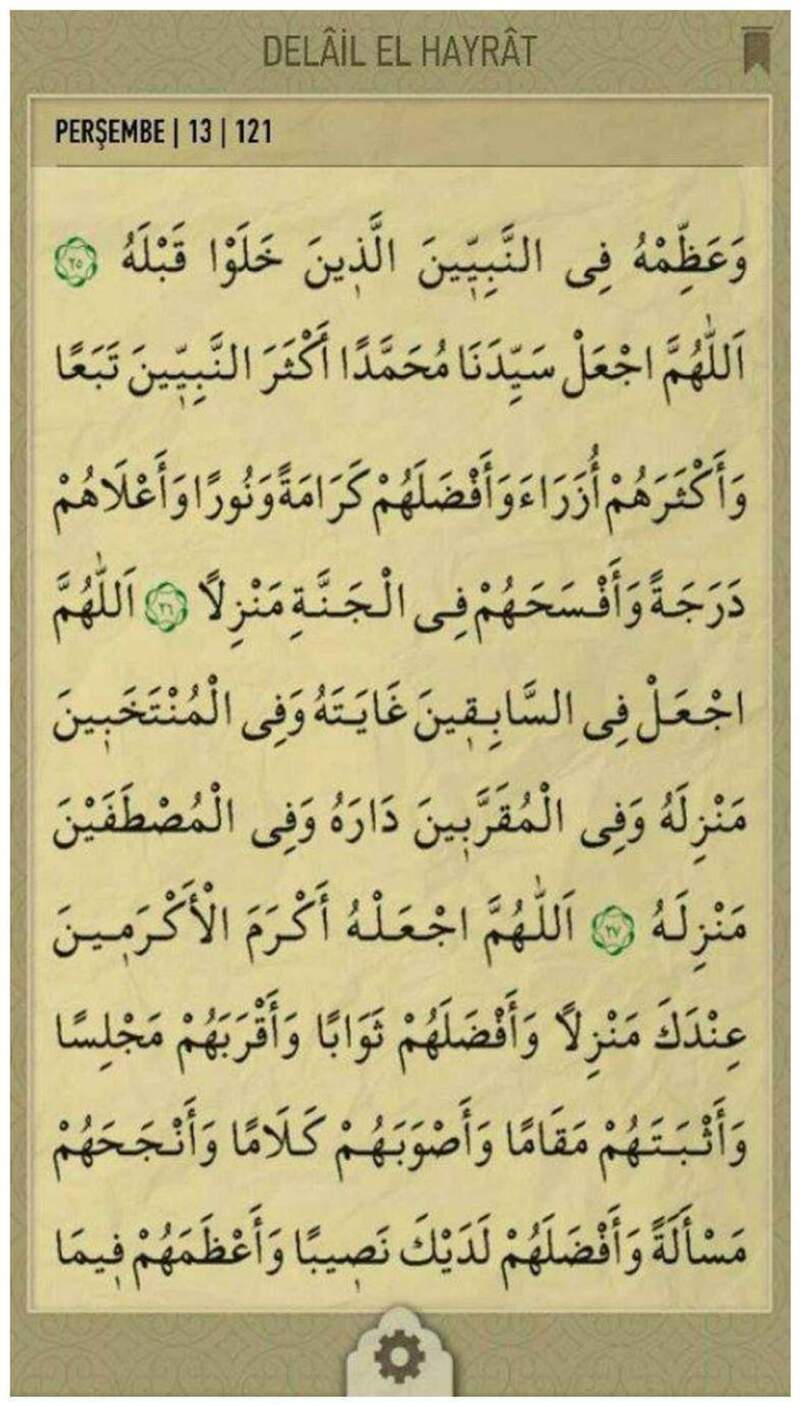 DELÂİL EL HAYRÂT
PERŞEMBE | 13 | 121
وَعَظِّمْهُ فِى النَّبِيّ۪ينَ الَّذ۪ينَ خَلَوْا قَبْلَهُ ﴿٢٥﴾
اَللّٰهُمَّ اجْعَلْ سَيِّدَنَا مُحَمَّدًا أَكْثَرَ النَّبِيّ۪ينَ تَبَعًا
وَأَكْثَرَهُمْ أُزَرَاءَ وَأَفْضَلَهُمْ كَرَامَةً وَنُورًا وَأَعْلَاهُمْ
دَرَجَةً وَأَفْسَحَهُمْ فِى الْجَنَّةِ مَنْزِلاً ﴿٢٦﴾ اَللّٰهُمَّ
اجْعَلْ فِى السَّابِق۪ينَ غَايَتَهُ وَفِى الْمُنْتَخَب۪ينَ
مَنْزِلَهُ وَفِى الْمُقَرَّب۪ينَ دَارَهُ وَفِى الْمُصْطَفَيْنَ
مَنْزِلَهُ ﴿٢٧﴾ اَللّٰهُمَّ اجْعَلْهُ أَكْرَمَ الْأَكْرَم۪ينَ
عِنْدَكَ مَنْزِلاً وَأَفْضَلَهُمْ ثَوَابًا وَأَقْرَبَهُمْ مَجْلِسًا
وَأَثْبَتَهُمْ مَقَامًا وَأَصْوَبَهُمْ كَلَامًا وَأَنْجَحَهُمْ
مَسْأَلَةً وَأَفْضَلَهُمْ لَدَيْكَ نَص۪يبًا وَأَعْظَمَهُمْ ف۪يمَا